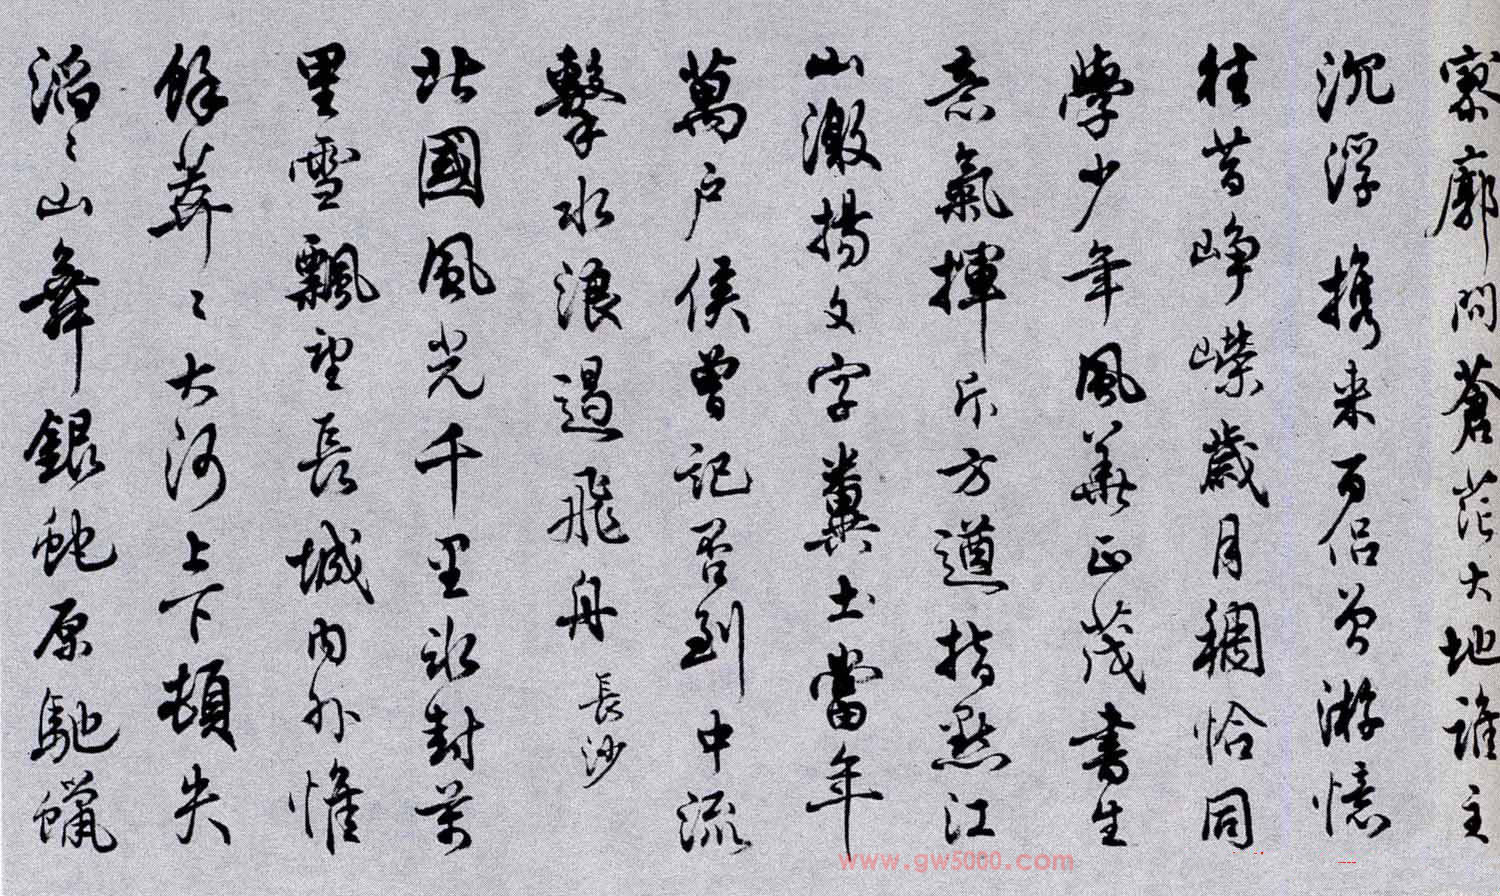 寥廓問蒼茫大地誰主
沉浮携来百侣曾游憶
往昔峥嶸歲月稠恰同
學少年風華正茂書生
意氣揮斥方遒指點江
山激揚文字糞土當年
萬户侯曾記否到中流
擊水浪遏飛舟 長沙
北國風光千里冰封萬
里雪飄望長城内外惟
餘莽々大河上下頓失
滔々山舞銀蛇原馳蠟
www.gw5000.com